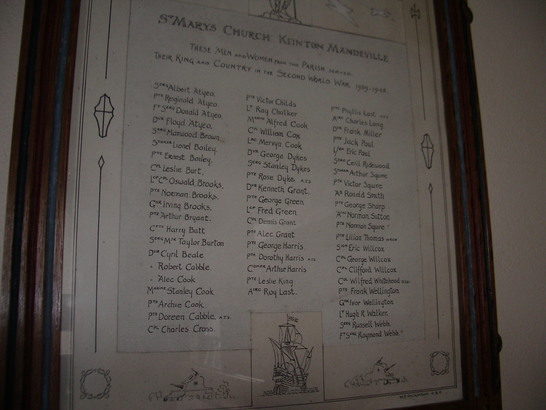 St Marys Church Keinton Mandeville
These Men and Women from the Parish served
Their King and Country in the Second World War. 1939-1945.
Albert Atyeo
Pte Reginald Atyeo
Donald Atyeo
Dvr Floyd Atyeo
Harwood Brown
Lionel Bailey
Pte Ernest Bailey
Cpl Leslie Bart
Oswald Brooks
Pte Norman Brooks
Irving Brooks
Pte Arthur Bryant
Harry Batt
Taylor Burton
Dvr Cyril Beale
Robert Cabble
Alec Cook
Stanley Cook
Pte Archie Cook
Pte Doreen Cabble A.T.S.
Cpl Charles Cross
Pte Victor Childs
Lt Roy Chalker
Alfred Cook
Cpl William Cox
Lac Mervyn Cook
Dvr George Dykes
Stanley Dykes
Pte Rose Dyke A.T.S.
Dvr Kenneth Grant
Pte George Green
Fred Green
Cpl Dennis Grant
Pte Alec Grant
Pte George Harris
Pte Dorothy Harris
Arthur Harris
Pte Leslie King
Roy Last
Pte Phyllis Last
Charles Lang
Dvr Frank Miller
Pte Jack Paul
Eric Paul
Cecil Ridewood
Arthur Squire
Pte Victor Squire
Ronald Smith
Pte George Sharp
Norman Sutton
Pte Norman Squire
Pte Lilian Thomas
Eric Willcox
Cpl George Willcox
Cpl Clifford Willcox
Cpl Wilfred Whitehead
Pte Frank Wellington
Ivor Wellington
Lt Hugh R Walker
Russell Webb
Raymond Webb